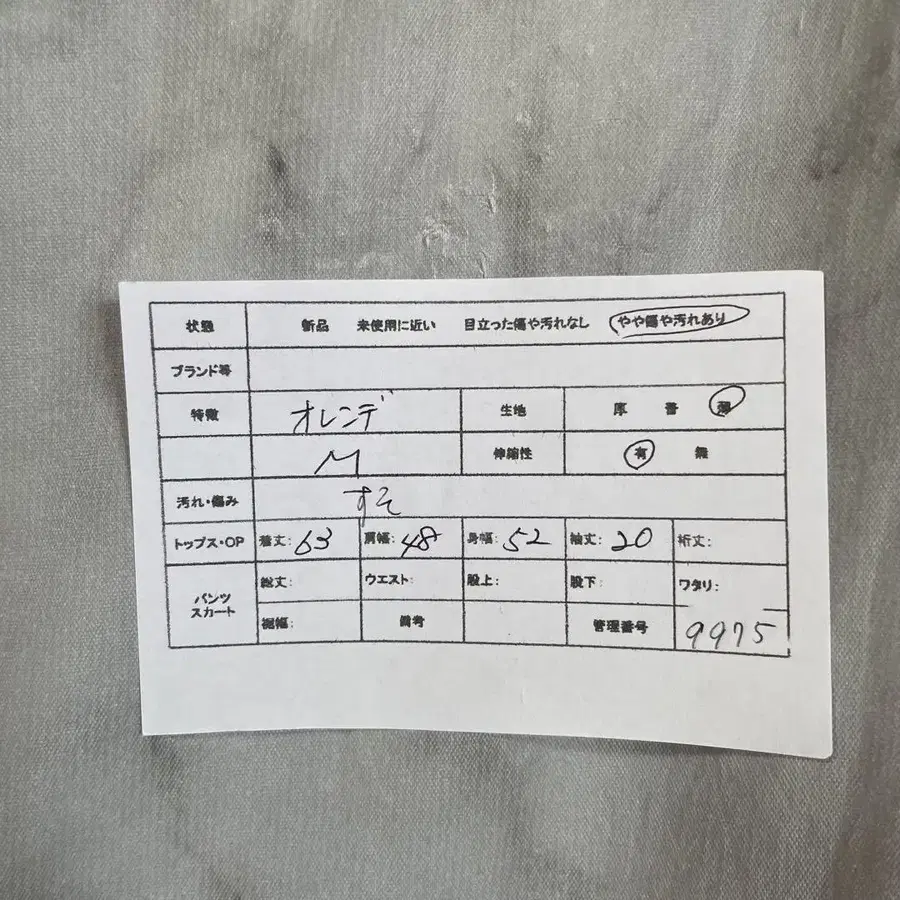 状態 新品 未使用に近い 目立った傷や汚れなし やや傷や汚れあり
ブランド等
特徴 オレンヂ 生地 厚 普 薄
M 伸縮性 有 無
汚れ・傷み すそ
トップス・OP 着丈: 63 肩幅: 48 身幅: 52 袖丈: 20 裄丈:
パンツ スカート 総丈: ウエスト: 股上: 股下: ワタリ:
裾幅: 備考 管理番号 9975